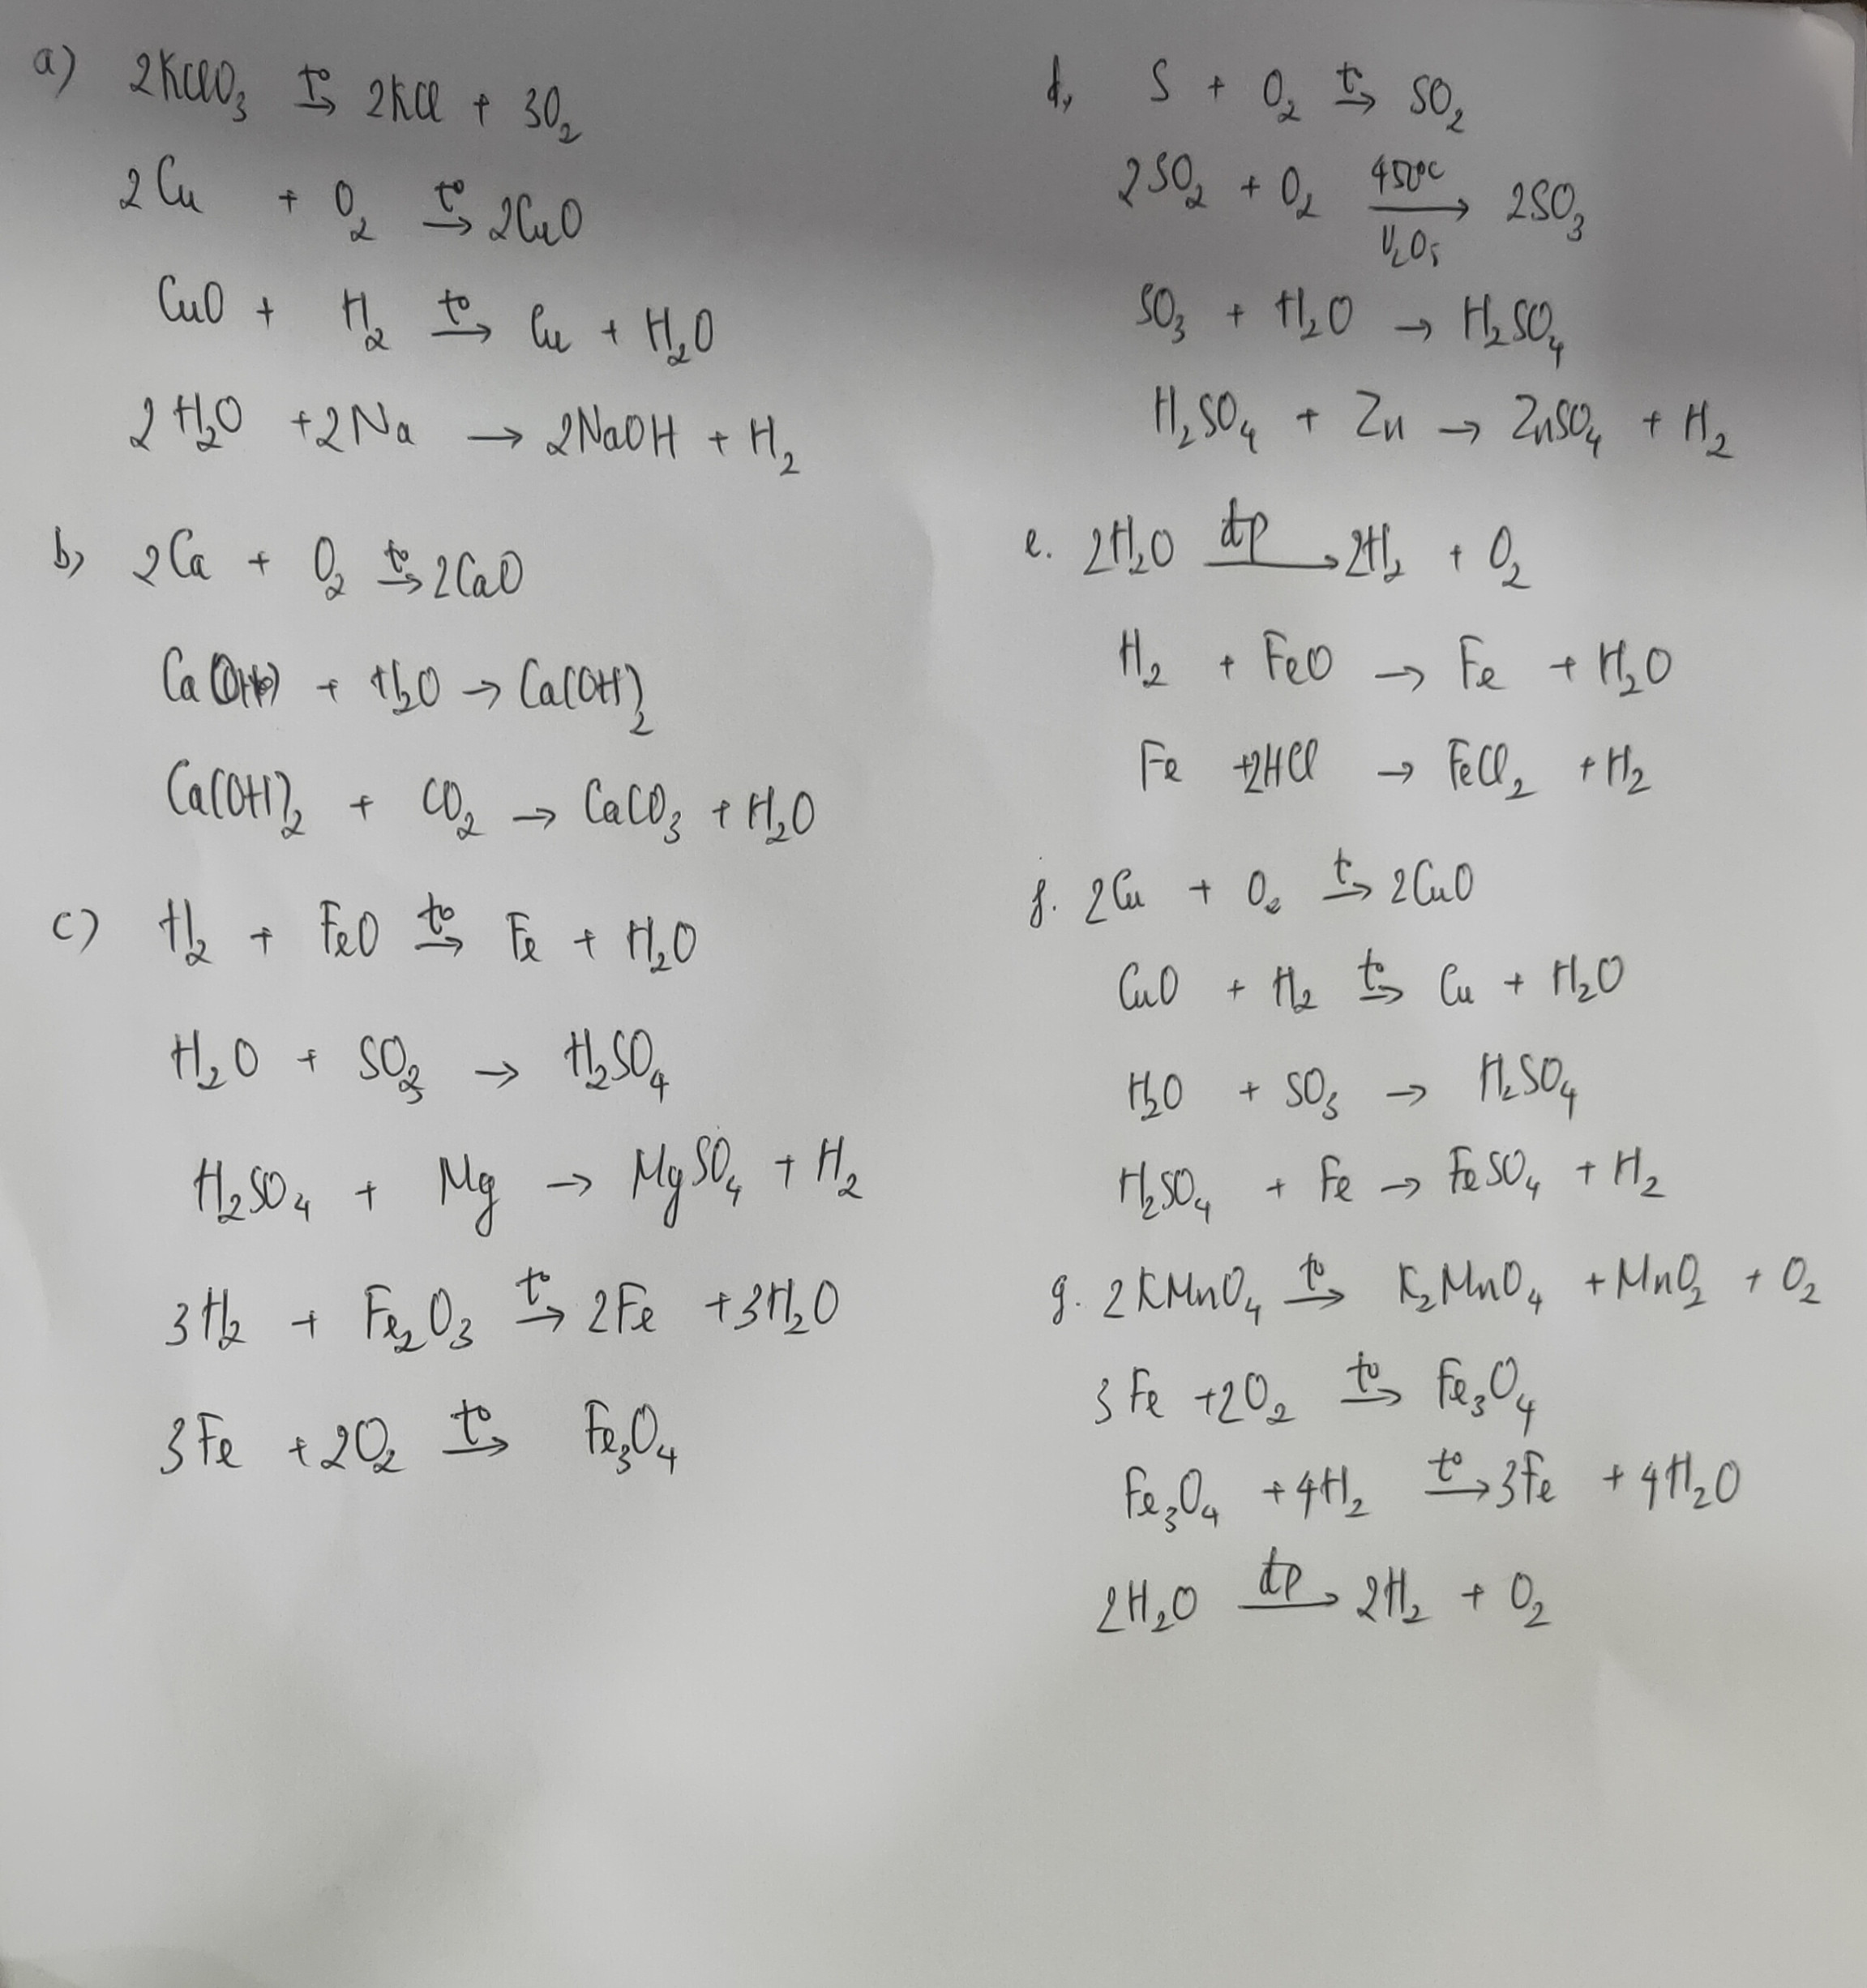 a) 2KClO₃ t°→ 2KCl + 3O₂
2Cu + O₂ t°→ 2CuO
CuO + H₂ t°→ Cu + H₂O
2H₂O +2Na → 2NaOH + H₂
b, 2Ca + O₂ t°→ 2CaO
Ca + H₂O → Ca(OH)₂
Ca(OH)₂ + CO₂ → CaCO₃ + H₂O
c) H₂ + FeO t°→ Fe + H₂O
H₂O + SO₃ → H₂SO₄
H₂SO₄ + Mg → MgSO₄ + H₂
3H₂ + Fe₂O₃ t°→ 2Fe +3H₂O
3Fe +2O₂ t°→ Fe₃O₄
d, S + O₂ t°→ SO₂
2SO₂ + O₂ 450°C→ V₂O₅ 2SO₃
SO₃ + H₂O → H₂SO₄
H₂SO₄ + Zn → ZnSO₄ + H₂
e. 2H₂O đp→ 2H₂ + O₂
H₂ + FeO → Fe + H₂O
Fe +2HCl → FeCl₂ + H₂
f. 2Cu + O₂ t°→ 2CuO
CuO + H₂ t°→ Cu + H₂O
H₂O + SO₃ → H₂SO₄
H₂SO₄ + Fe → FeSO₄ + H₂
g. 2KMnO₄ t°→ K₂MnO₄ + MnO₂ + O₂
3Fe +2O₂ t°→ Fe₃O₄
Fe₃O₄ +4H₂ t°→ 3Fe + 4H₂O
2H₂O đp→ 2H₂ + O₂